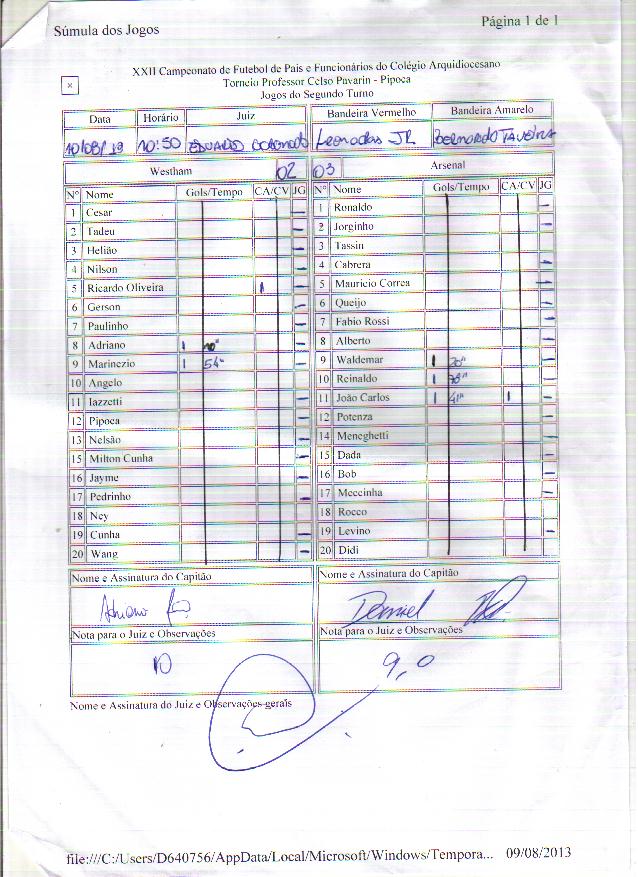 Súmula dos Jogos
Página 1 de 1
XXII Campeonato de Futebol de Pais e Funcionários do Colégio Arquidiocesano
Torneio Professor Celso Pavarin - Pipoca
Jogos do Segundo Turno
x
Data Horário Juiz Bandeira Vermelho Bandeira Amarelo
10:50 EDUARDO JR BERNARDO
Westham 02 03 Arsenal
Nº Nome Gols/Tempo CA/CV JG Nº Nome Gols/Tempo CA/CV JG
1 Cesar 1 Ronaldo
2 Tadeu 2 Jorginho
3 Helião 3 Tassin
4 Nilson 4 Cabrera
5 Ricardo Oliveira 1 5 Mauricio Correa
6 Gerson 6 Queijo
7 Paulinho 7 Fabio Rossi
8 Adriano 1 8 Alberto
9 Marinezio 1 54" 9 Waldemar 1 20"
10 Angelo 10 Reinaldo 1
11 Iazzetti 11 João Carlos 1 41" 1
12 Pipoca 12 Potenza
13 Nelsão 14 Meneghetti
15 Milton Cunha 15 Dada
16 Jayme 16 Bob
17 Pedrinho 17 Meccinha
18 Ney 18 Rocco
19 Cunha 19 Levino
20 Wang 20 Didi
Nome e Assinatura do Capitão Nome e Assinatura do Capitão
Adriano Daniel
Nota para o Juiz e Observações Nota para o Juiz e Observações
10 9,0
Nome e Assinatura do Juiz e Observações gerais
file:///C:/Users/D640756/AppData/Local/Microsoft/Windows/Tempora... 09/08/2013